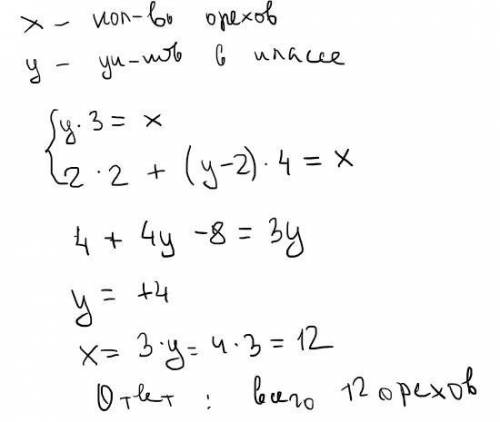 x - кол-во орехов
y - уч-ков в классе
y·3 = x
2·2 + (y-2)·4 = x
4 + 4y -8 = 3y
y = +4
x= 3·y= 4·3 = 12
Ответ : всего 12 орехов